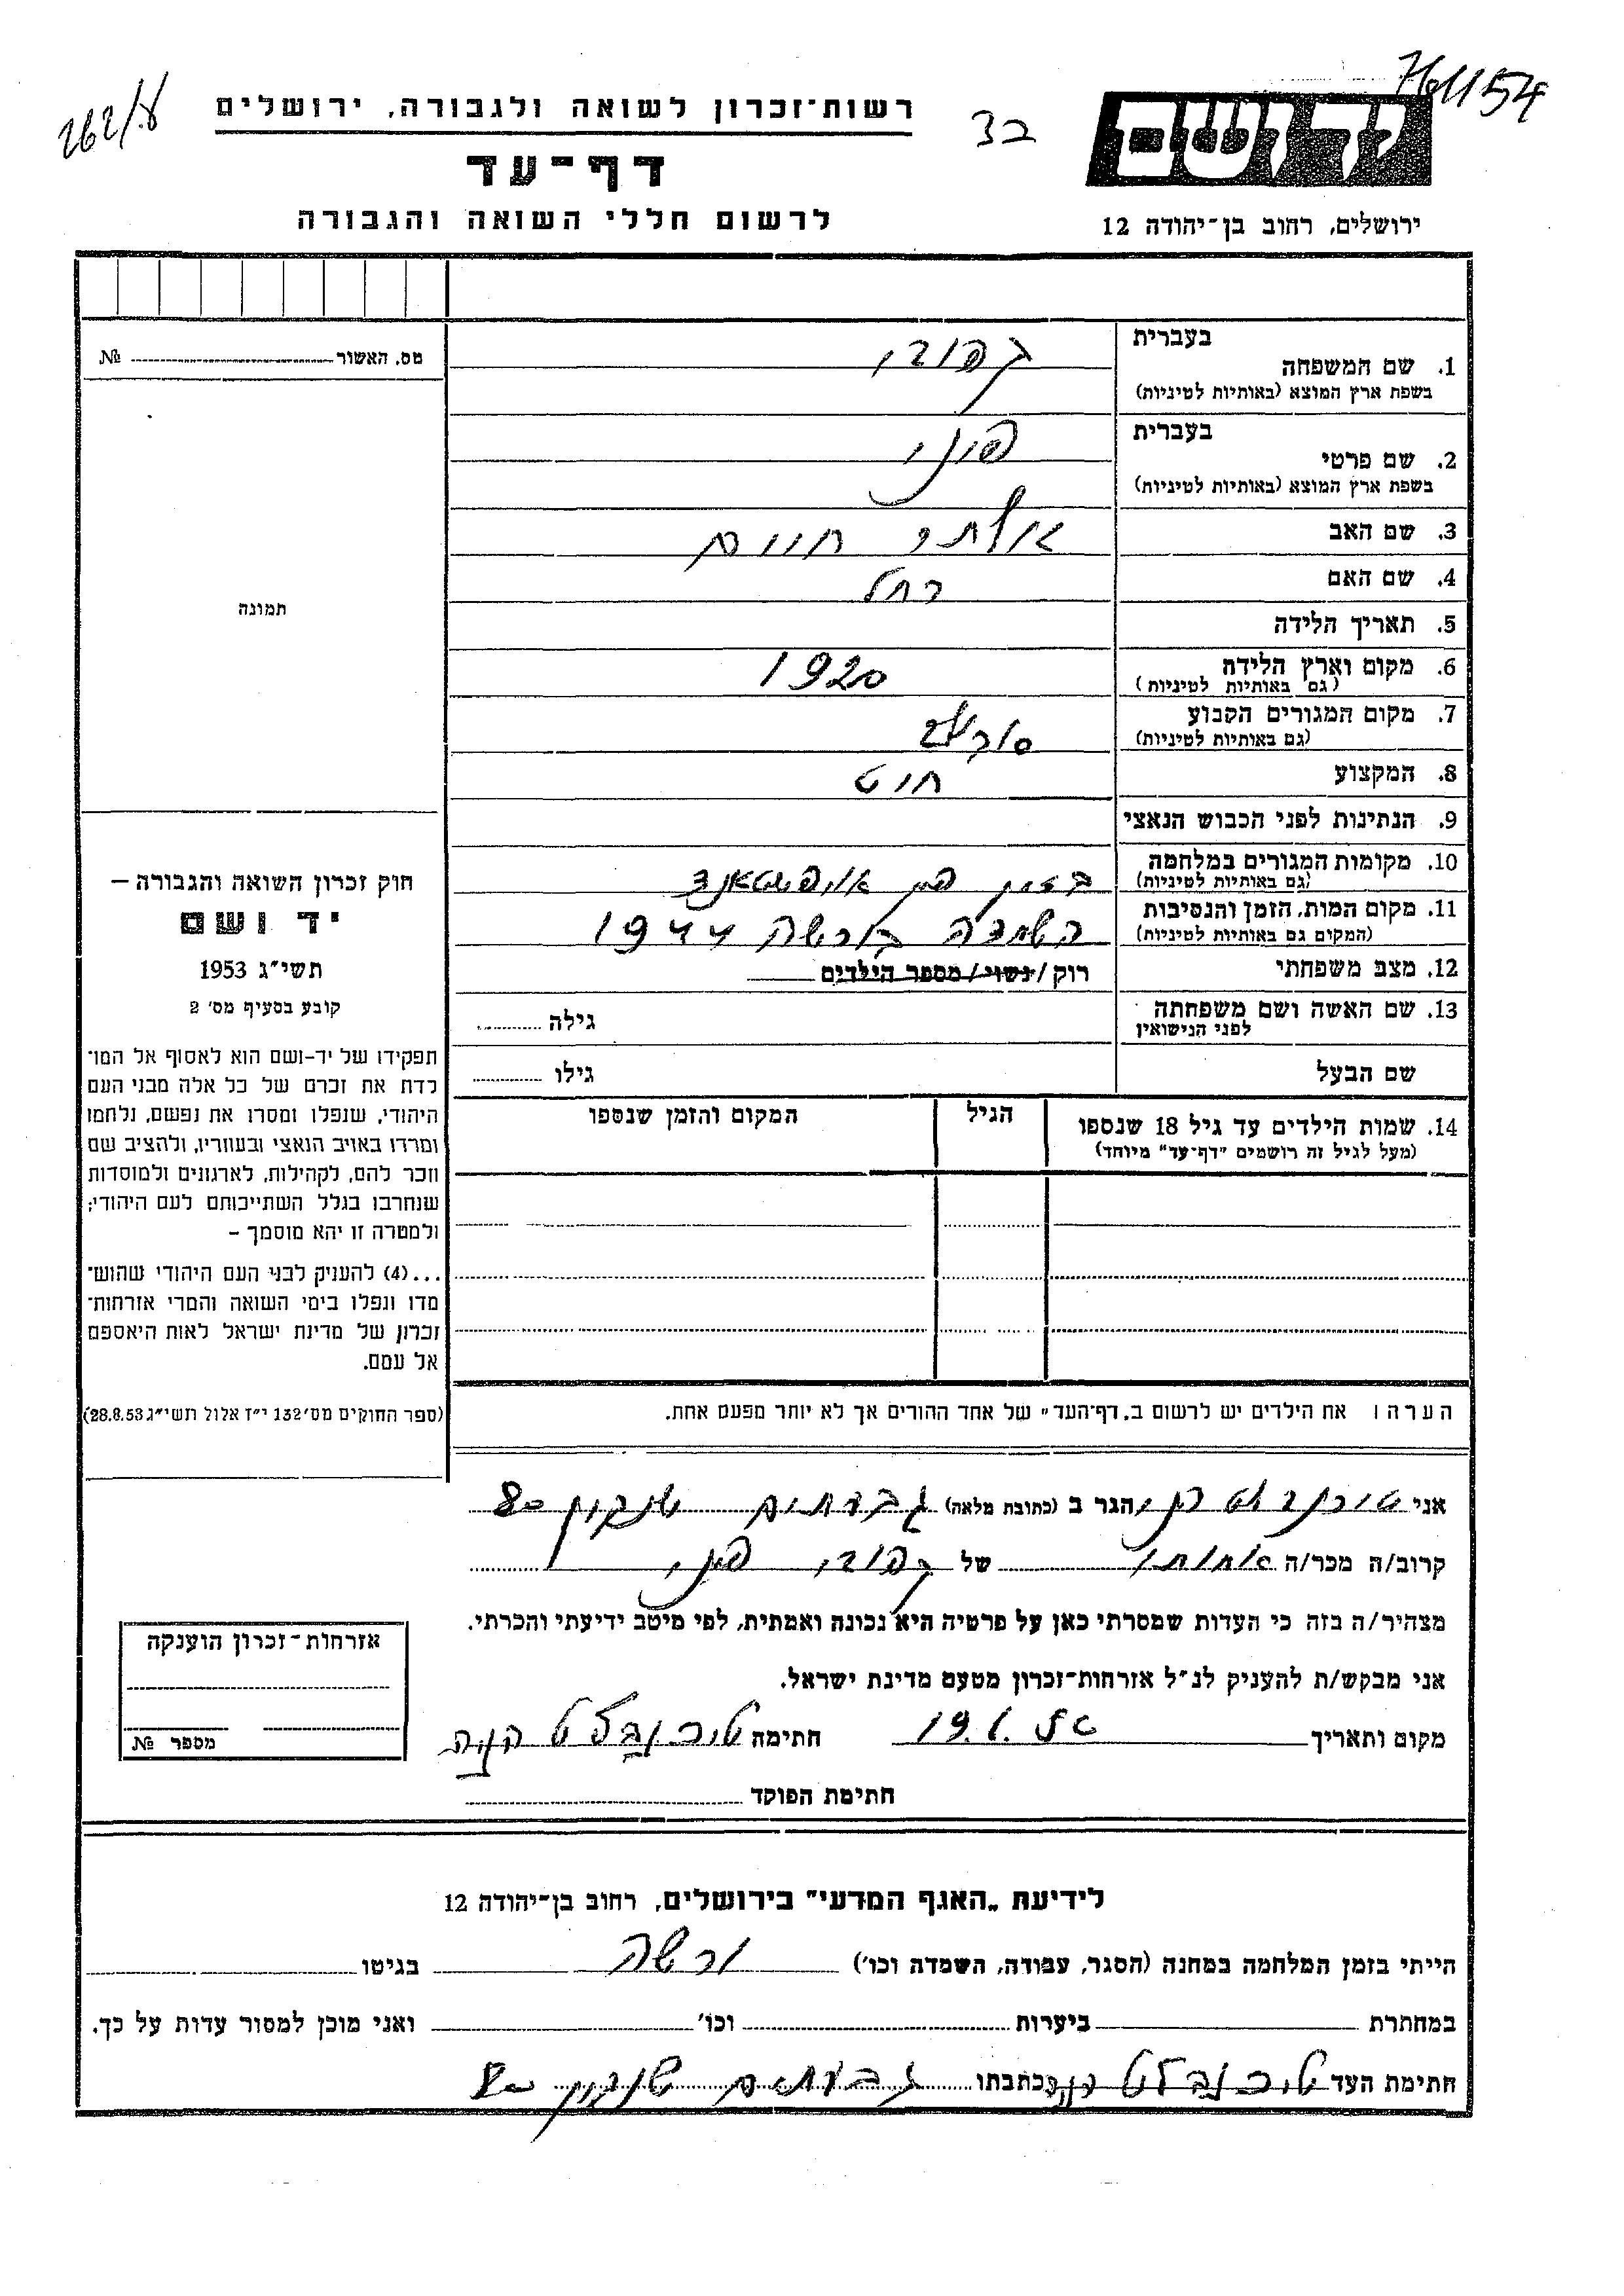 262/ע
רשות־זכרון לשואה ולגבורה, ירושלים
דף־עד
לרשום חללי השואה והגבורה
32
יד ושם
ירושלים, רחוב בן־יהודה 12
1. שם המשפחה בעברית
בשפת ארץ המוצא (באותיות לטיניות)
2. שם פרטי בעברית
בשפת ארץ המוצא (באותיות לטיניות)
3. שם האב חיים
4. שם האם רחל
5. תאריך הלידה
6. מקום וארץ הלידה 1920
(גם באותיות לטיניות)
7. מקום המגורים הקבוע
(גם באותיות לטיניות)
8. המקצוע
9. הנתינות לפני הכבוש הנאצי
10. מקומות המגורים במלחמה
(גם באותיות לטיניות)
11. מקום המות, הזמן והנסיבות השמדה ורשה 1944
(המקום גם באותיות לטיניות)
12. מצב משפחתי רוק / נשוי / מספר הילדים
13. שם האשה ושם משפחתה גילה
לפני הנישואין
שם הבעל גילו
14. שמות הילדים עד גיל 18 שנספו הגיל המקום והזמן שנספו
(מעל לגיל זה רושמים "דף־עד" מיוחד)
הערה ! את הילדים יש לרשום ב„דף־העד" של אחד ההורים אך לא יותר מפעם אחת.
מס. האשור №
תמונה
חוק זכרון השואה והגבורה –
יד ושם
תשי״ג 1953
קובע בסעיף מס׳ 2
תפקידו של יד-ושם הוא לאסוף אל המו־
לדת את זכרם של כל אלה מבני העם
היהודי, שנפלו ומסרו את נפשם, נלחמו
ומרדו באויב הנאצי ובעוזריו, ולהציב שם
וזכר להם, לקהילות, לארגונים ולמוסדות
שנחרבו בגלל השתייכותם לעם היהודי;
ולמטרה זו יהא מוסמך –
...(4) להעניק לבני העם היהודי שהוש־
מדו ונפלו בימי השואה והמרי אזרחות־
זכרון של מדינת ישראל לאות היאספם
אל עמם.
(ספר החוקים מס׳ 132 י״ז אלול תשי״ג 28.8.53)
אני הגר ב (כתובת מלאה) גבעתים שנקין 80
קרוב/ה מכר/ה אחותו של
מצהיר/ה בזה כי העדות שמסרתי כאן על פרטיה היא נכונה ואמתית, לפי מיטב ידיעתי והכרתי.
אני מבקש/ת להעניק לנ״ל אזרחות־זכרון מטעם מדינת ישראל.
מקום ותאריך חתימה טוכנבלט חנה
חתימת הפוקד
אזרחות־זכרון הוענקה
מספר №
לידיעת „האגף המדעי" בירושלים, רחוב בן־יהודה 12
הייתי בזמן המלחמה במחנה (הסגר, עבודה, השמדה וכו׳) ורשה בגיטו
במחתרת ביערות וכו׳ ואני מוכן למסור עדות על כך.
חתימת העד טוכנבלט חנה כתבתו גבעתים שנקין 80